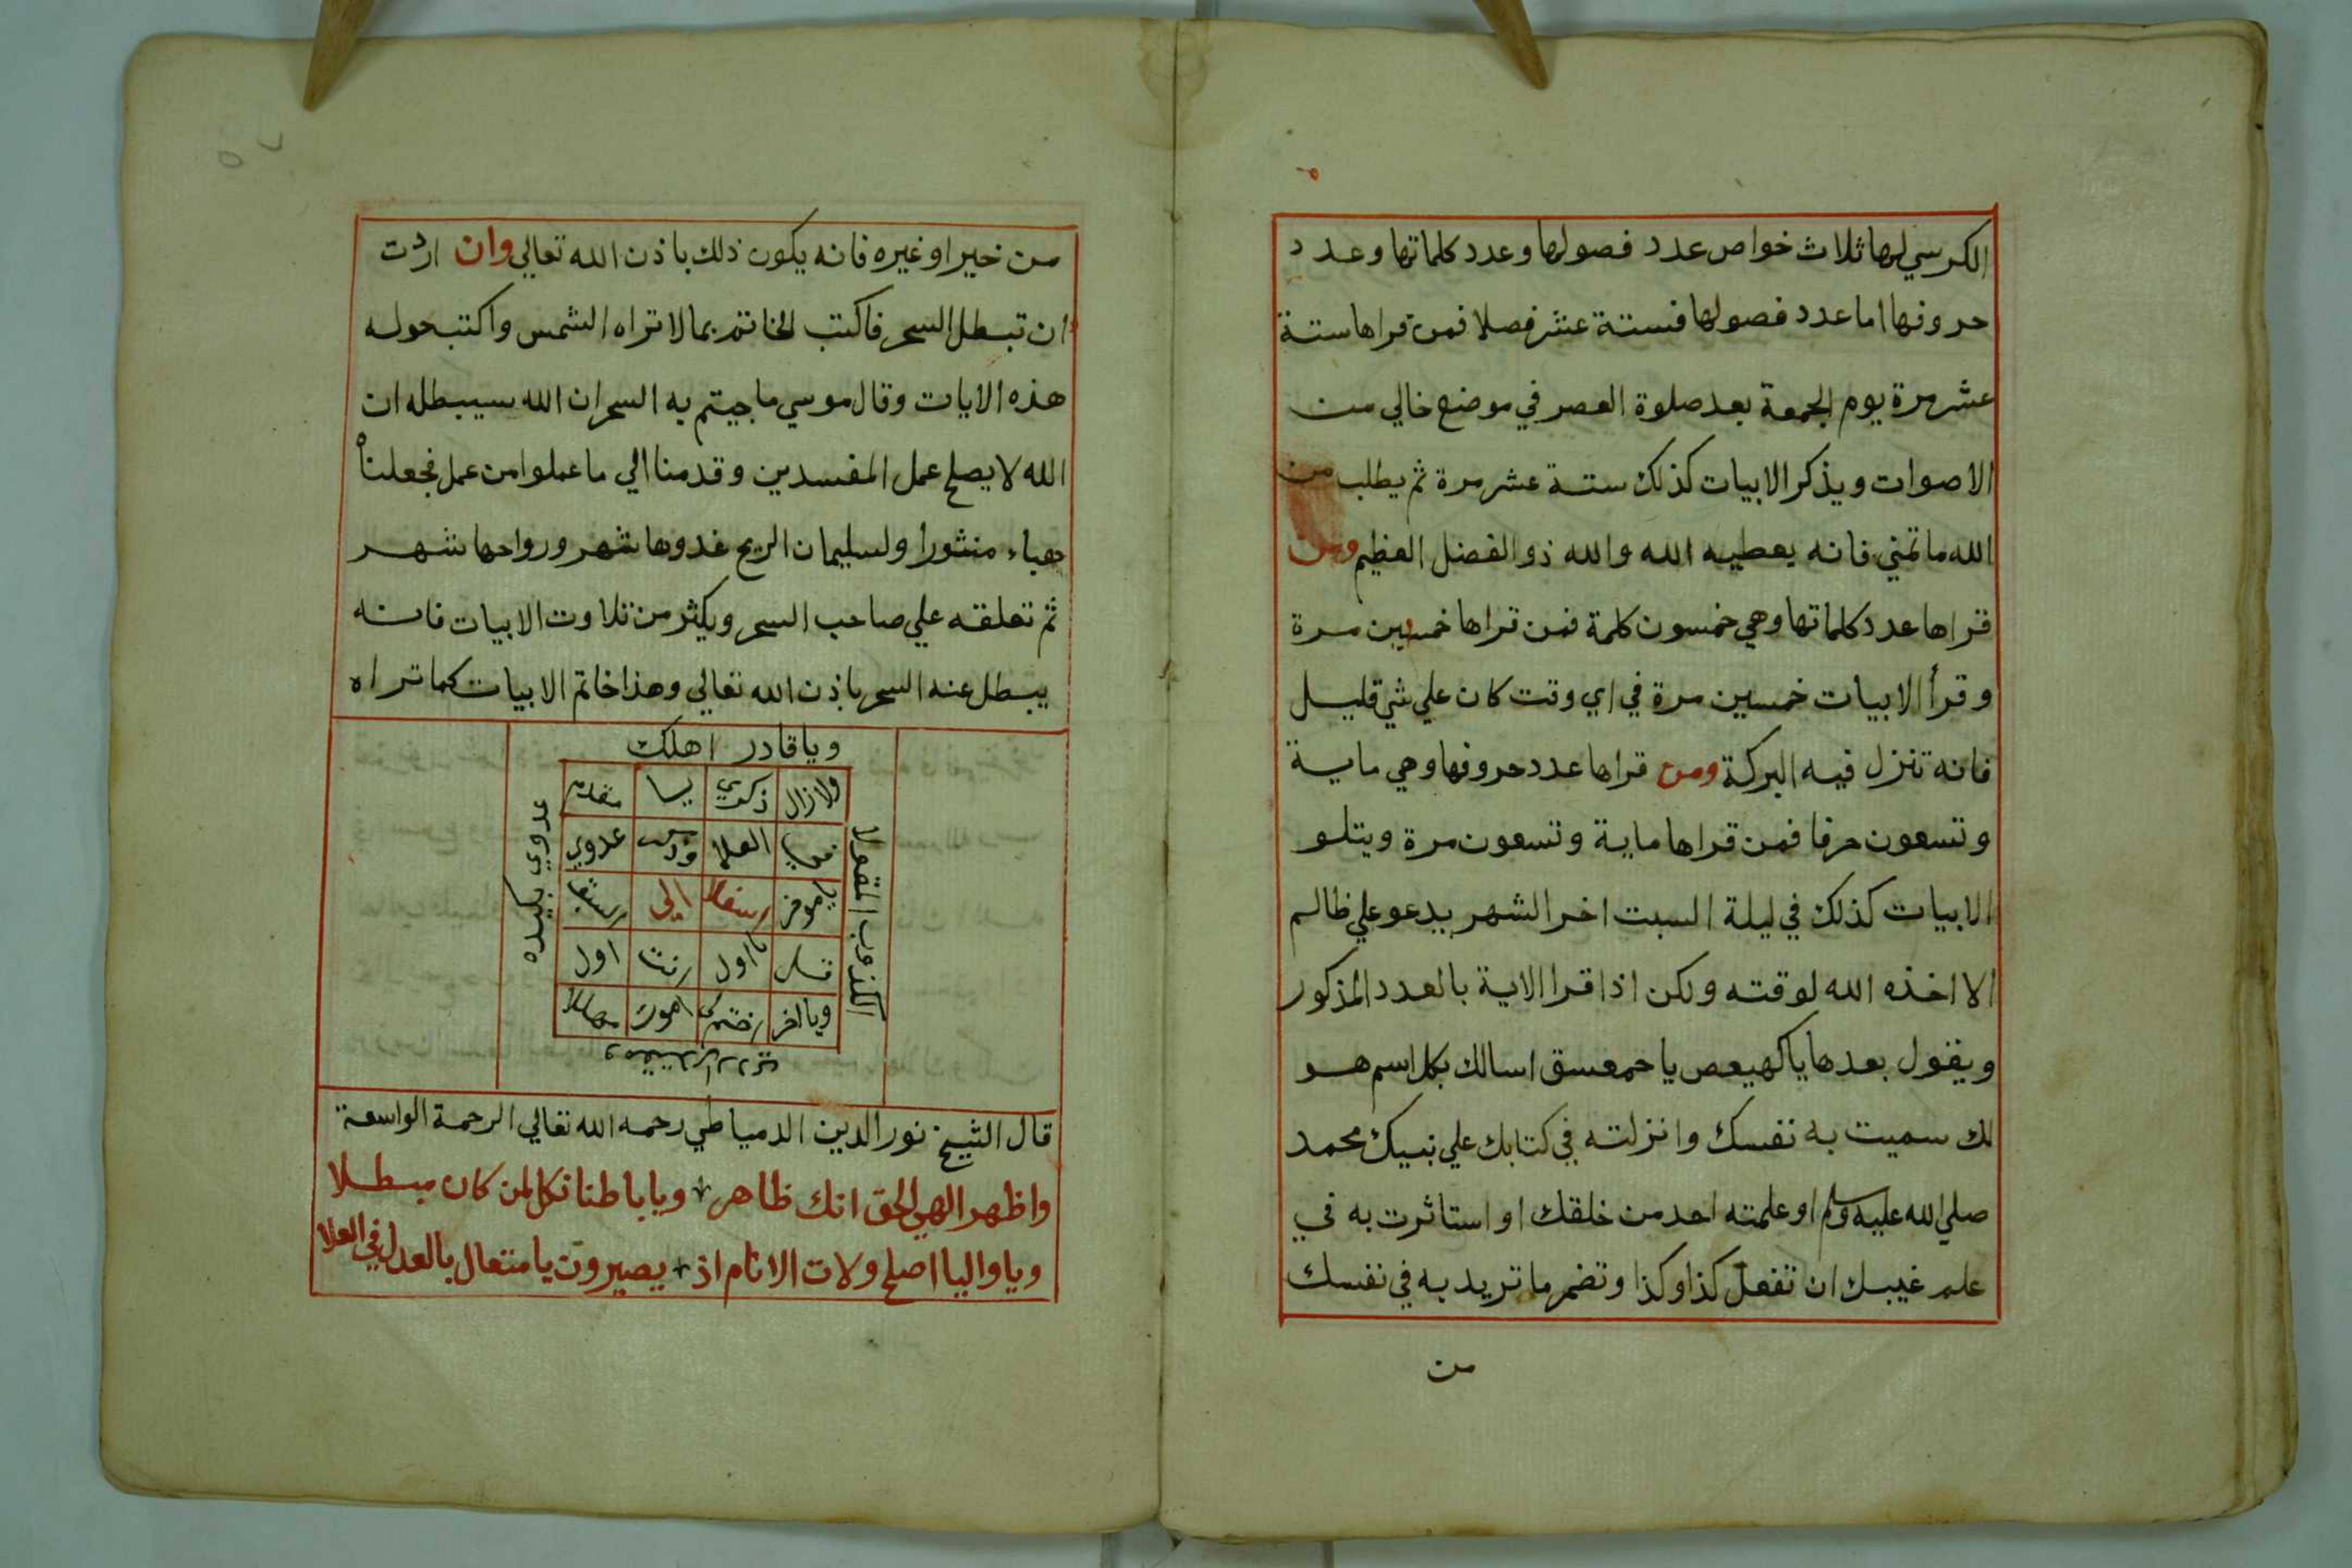 الكرسي لها ثلاث خواص عدد فصولها وعدد كلماتها وعدد
حروفها اما عدد فصولها فستة عشر فصلا فمن قراها ستة
عشر مرة يوم الجمعة بعد صلوة العصر في موضع خالي من
الاصوات ويذكر الابيات كذلك ستة عشر مرة ثم يطلب من
الله ما تمني فانه يعطيه الله والله ذو الفضل العظيم ومن
قراها عدد كلماتها وهي خمسون كلمة فمن قراها خمسين مرة
وقرأ الابيات خمسين مرة في اي وقت كان علي شي قليل
فانه تنزل فيه البركة ومن قراها عدد حروفها وهي ماية
وتسعون حرفا فمن قراها ماية وتسعون مرة ويتلو
الابيات كذلك في ليلة السبت اخر الشهر يدعو علي ظالم
الا اخذه الله لوقته ولكن اذا قرا الاية بالعدد المذكور
ويقول بعدها يا كهيعص يا حمعسق اسالك بكل اسم هو
لك سميت به نفسك وانزلته في كتابك علي نبيك محمد
صلي الله عليه وسلم او علمته احد من خلقك او استاثرت به في
علم غيبك ان تفعل كذا وكذا وتضمر ما تريد به في نفسك
من
من خير او غيره فانه يكون ذلك باذن الله تعالي وان اردت
ان تبطل السحر فاكتب الخاتم بما لا تراه الشمس واكتب حوله
هذه الايات وقال موسي ما جيتم به السحر ان الله سيبطله ان
الله لا يصلح عمل المفسدين وقدمنا الي ما عملوا من عمل فجعلناه
هباء منثورا ولسليمان الريح غدوها شهر ورواحها شهر
ثم تعلقه علي صاحب السحر ويكثر من تلاوت الابيات فانه
يبطل عنه السحر باذن الله تعالي وهذا خاتم الابيات كما تراه
ويا قادر اهلك
ولا زال ذكري يا مقدم
العلا عدوي
الي
اول اول
ويا اخر
عدوي بكيده
الكذوب المقولا
قال الشيخ نور الدين الدمياطي رحمه الله تعالي الرحمة الواسعة
واظهر الهي الحق انك ظاهر ويا باطنا نكل لمن كان مبطلا
ويا واليا اصلح ولات الانام اذ يصيرون يا متعال بالعدل في العلا